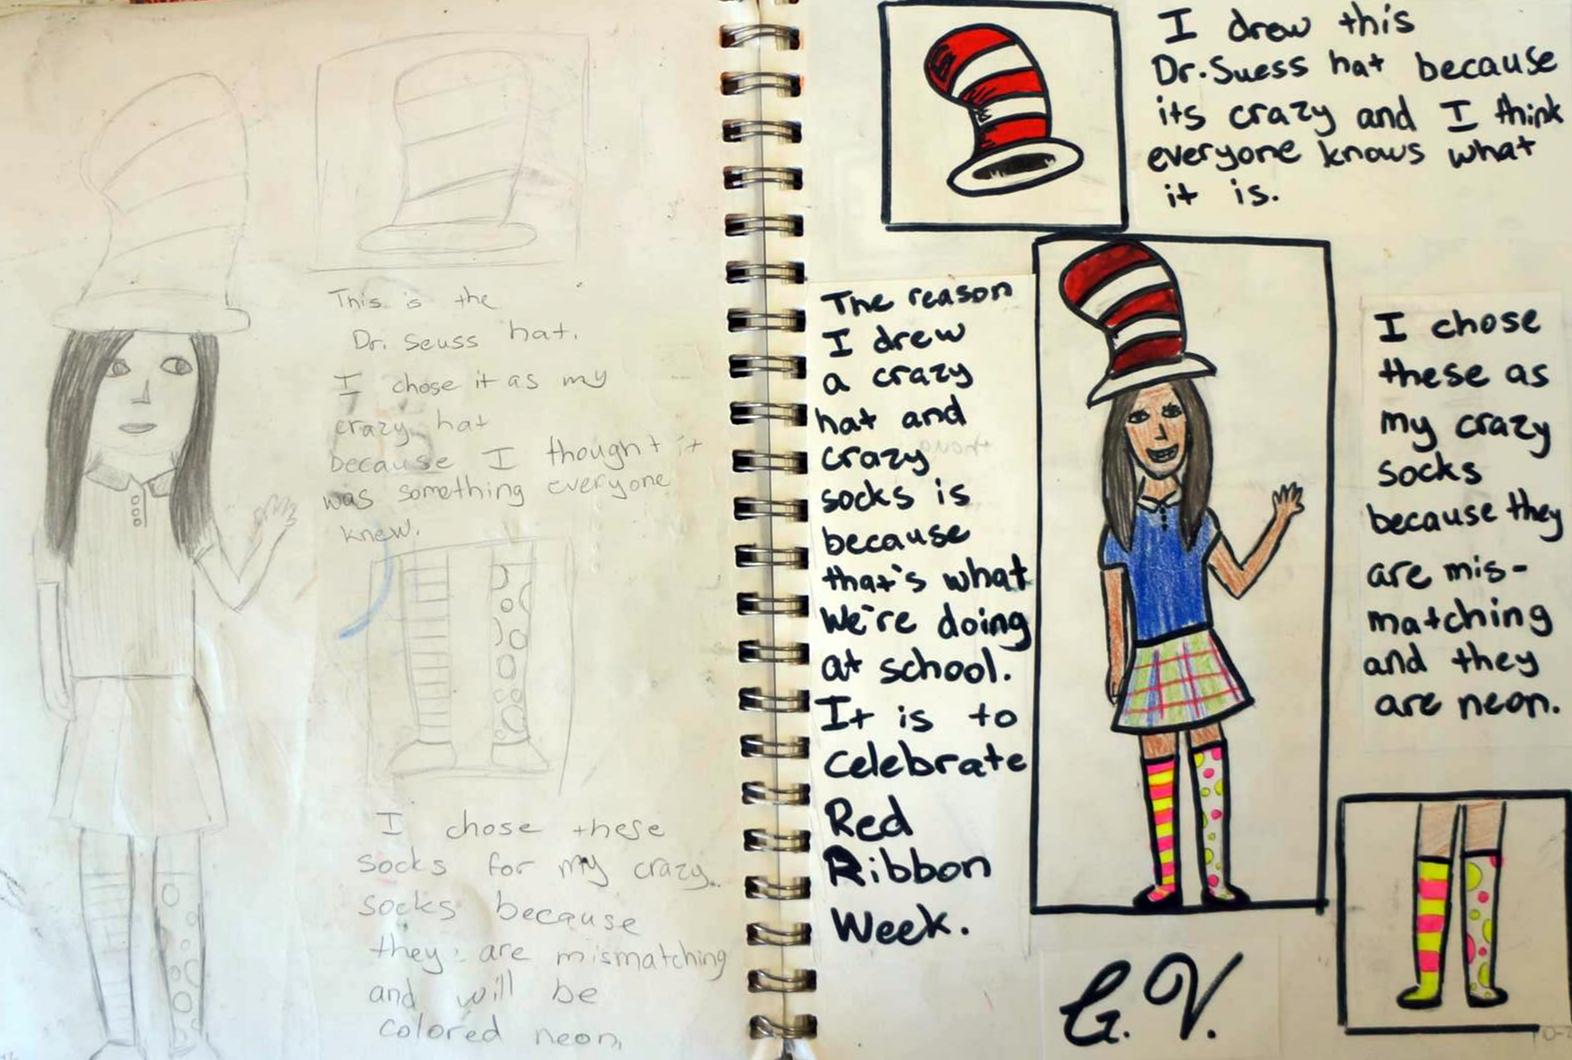 This is the
Dr. Seuss hat.
I chose it as my
crazy hat
because I thought it
was something everyone
knew.
I chose these
socks for my crazy
socks because
they are mismatching
and will be
colored neon.
I drew this
Dr. Suess hat because
its crazy and I think
everyone knows what
it is.
The reason
I drew
a crazy
hat and
crazy
socks is
because
that's what
we're doing
at school.
It is to
celebrate
Red
Ribbon
Week.
I chose
these as
my crazy
socks
because they
are mis-
matching
and they
are neon.
G.V.